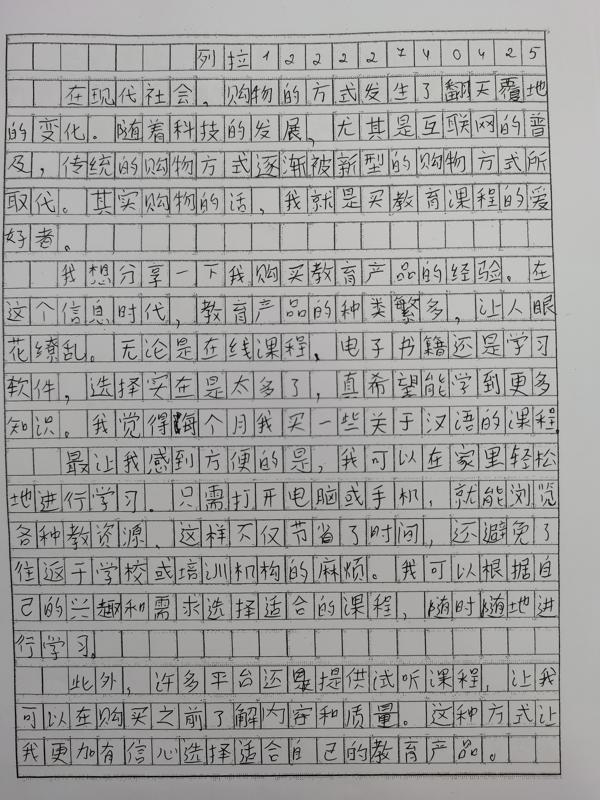 列拉1222274042 5
在现代社会，购物的方式发生了翻天覆地
的变化。随着科技的发展，尤其是互联网的普
及，传统的购物方式逐渐被新型的购物方式所
取代。其实购物的话，我就是买教育课程的爱
好者。
我想分享一下我购买教育产品的经验。在
这个信息时代，教育产品的种类繁多，让人眼
花缭乱。无论是在线课程、电子书籍还是学习
软件，选择实在是太多了，真希望能学到更多
知识。我觉得每个月我买一些关于汉语的课程
最让我感到方便的是，我可以在家里轻松
地进行学习。只需打开电脑或手机，就能浏览
各种教资源、这样不仅节省了时间，还避免了
往返于学校或培训机构的麻烦。我可以根据自
己的兴趣和需求选择适合的课程，随时随地进
行学习。
此外，许多平台还是提供试听课程，让我
可以在购买之前了解内容和质量。这种方式让
我更加有信心选择适合自己的教育产品。